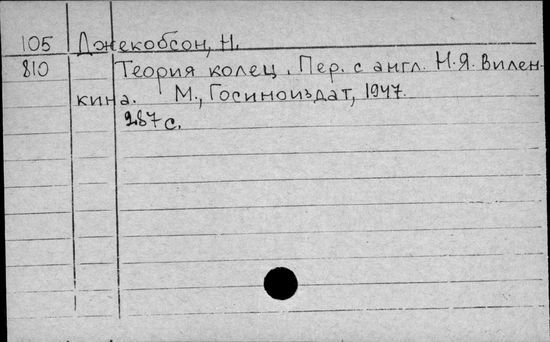 105 Джекобсон, Н.
810 Теория колец. Пер. с англ. Н.Я. Вилен-
кина. М., Госиноиздат, 1947.
287 с.